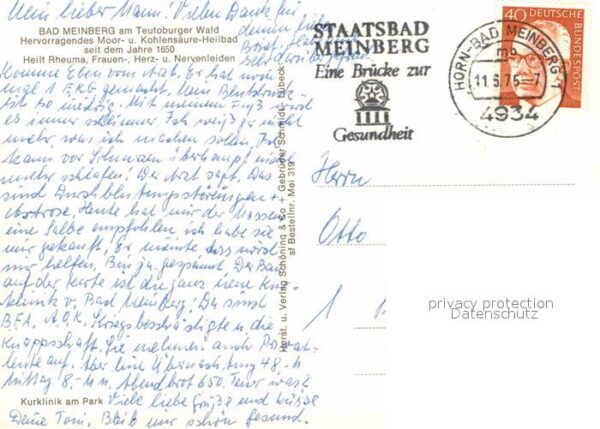 Mein lieber Mann! Vielen Dank für
deinen
BAD MEINBERG am Teutoburger Wald
Hervorragendes Moor- u. Kohlensäure-Heilbad
seit dem Jahre 1650
Heilt Rheuma, Frauen-, Herz- u. Nervenleiden
Komme Eben vom Arzt. Er hat noch
mal 1 EKG gemacht. Mein Blutdruck
ist so niedrig. Mit meinem Fuß wird
es immer schlimmer. Ich weiß gar nicht
mehr, was ich machen sollen, Ich
kann vor Schmerzen überhaupt nicht
mehr schlafen! Der Arzt sagt, Das
sind Durchblutungsstörungen +
Heute hat mir der Masseur
eine Salbe empfohlen, ich habe sie
mir gekauft. Er meinte das würde
mir helfen, Bin ja gespannt. Der Bau
auf der Karte ist die ganz neue Kur
klinik v. Bad Meinberg. Da sind
B.F.A. A.O.K. Kriegsbeschädigte u. die
Knappschaft. Sie nehmen auch Privat-
leute auf. Aber eine Übernachtung 48,-
Mittag 8,- Abendbrot 6.50. Teuer was?
Kurklinik am Park
Viele liebe Grüße und Küsse
Deine Toni, Bleib mir schön gesund.
Horst. u. Verlag Schöning & Co + Gebrüder Schmidt, Lübeck
sf Bestellnr. Mei 319
STAATSBAD
MEINBERG
Eine Brücke zur
Gesundheit
HORN-BAD MEINBERG 1
mo
11.6.75-7
4934
40 DEUTSCHE
BUNDESPOST
Herrn
Otto
1
privacy protection
Datenschutz